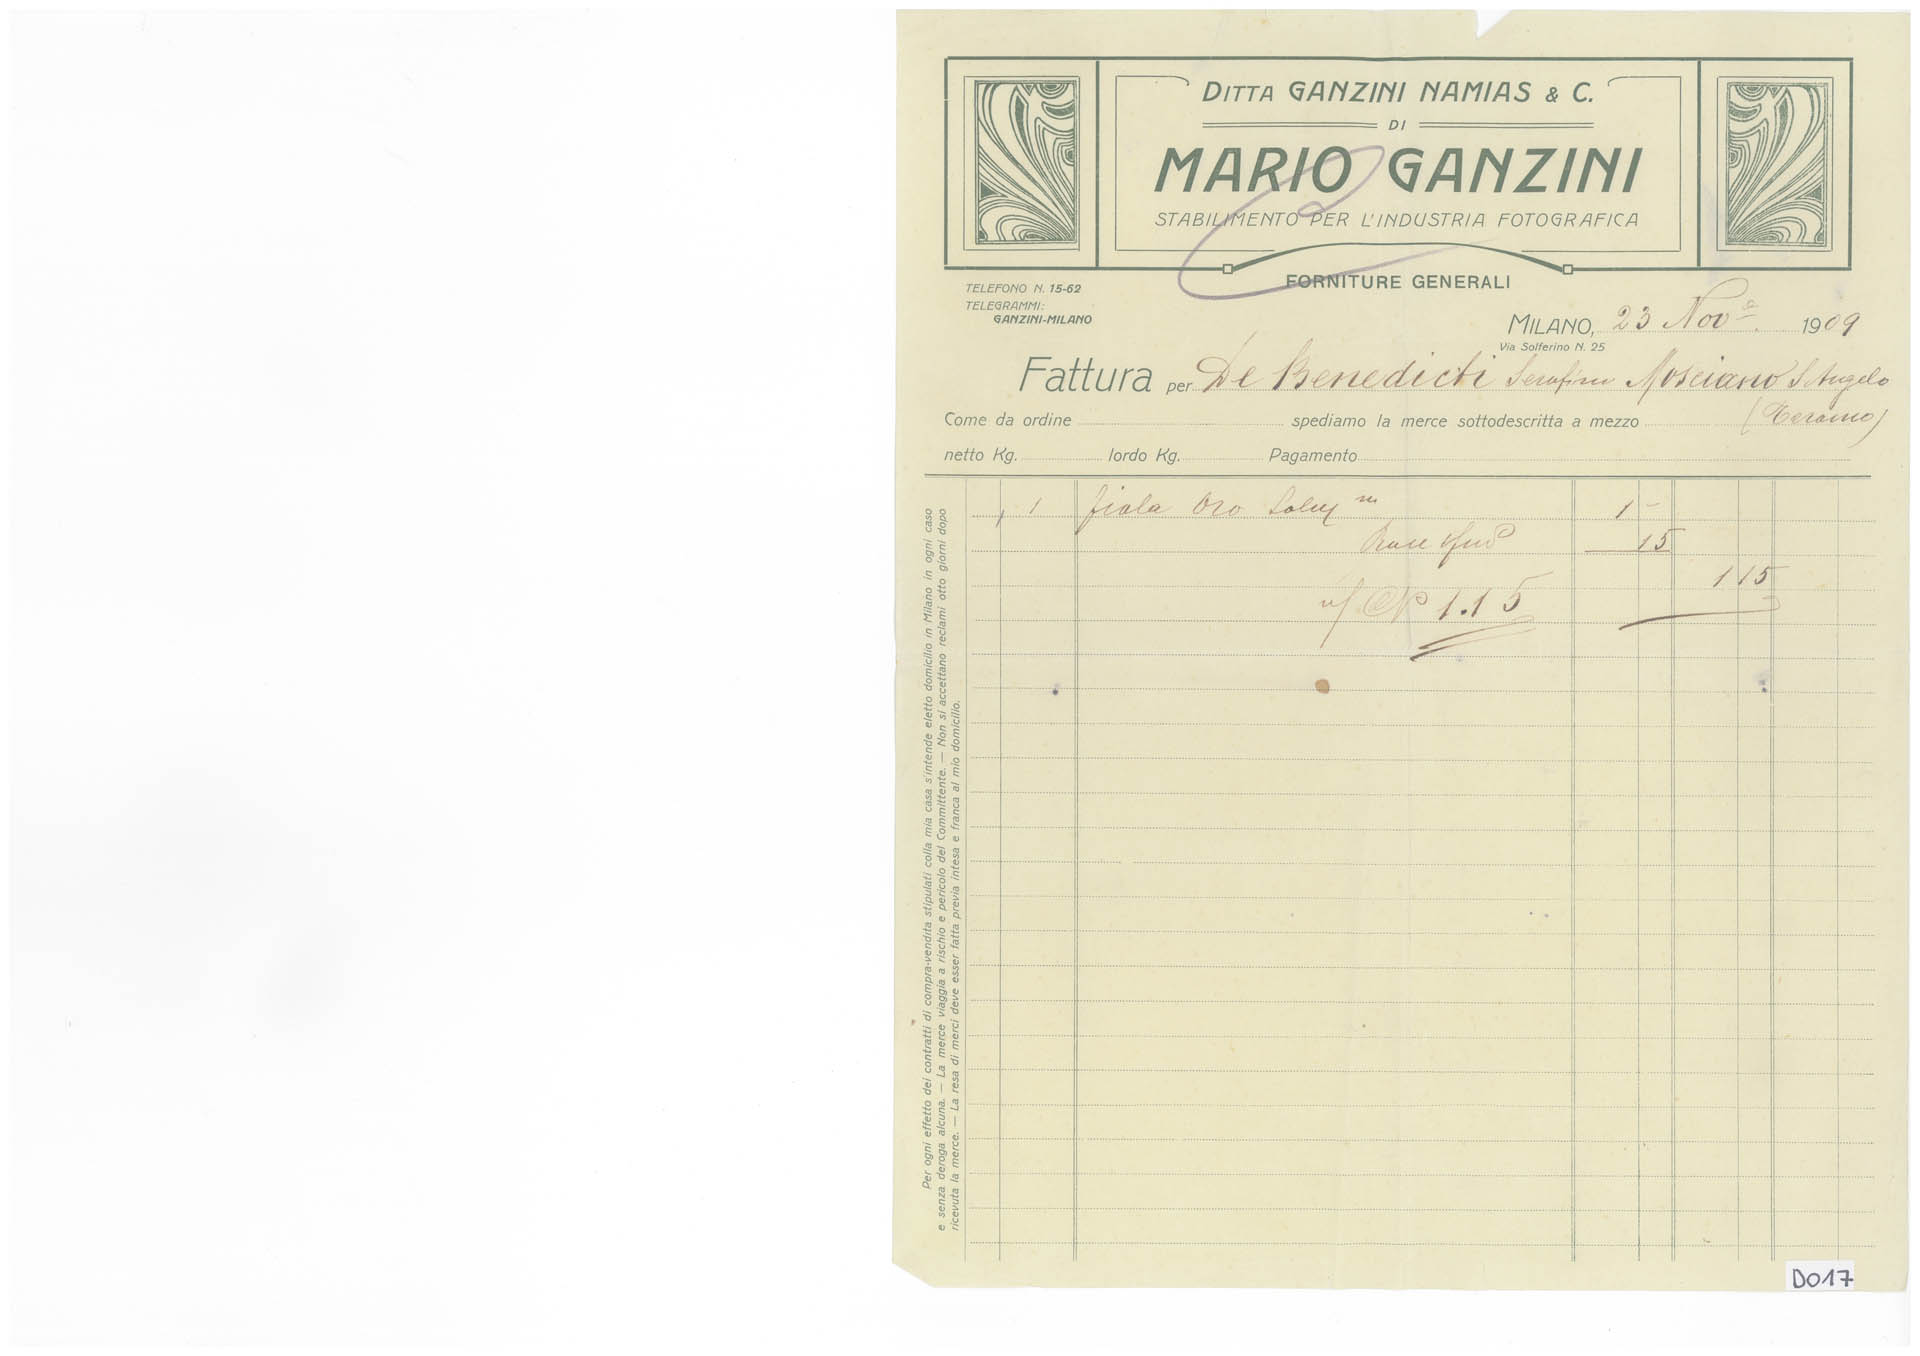 DITTA GANZINI NAMIAS & C.
DI
MARIO GANZINI
STABILIMENTO PER L'INDUSTRIA FOTOGRAFICA
FORNITURE GENERALI
TELEFONO N. 15-62
TELEGRAMMI:
GANZINI-MILANO
MILANO, 23 Nov 1909
Via Solferino N. 25
Fattura per De Benedicti Serafino Mosciano S Angelo
Come da ordine spediamo la merce sottodescritta a mezzo (Teramo)
netto Kg. lordo Kg. Pagamento
1 fiala Oro 1 -
15
1 15
1.15
Per ogni effetto dei contratti di compra-vendita stipulati colla mia casa s'intende eletto domicilio in Milano in ogni caso
e senza deroga alcuna. — La merce viaggia a rischio e pericolo del Committente. — Non si accettano reclami otto giorni dopo
ricevuta la merce. — La resa di merci deve esser fatta previa intesa e franca al mio domicilio.
D017